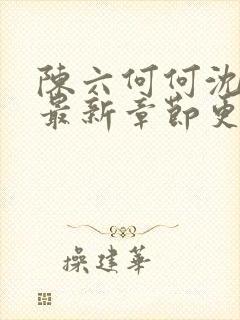 陳六何何沈
最新章節更
操建華